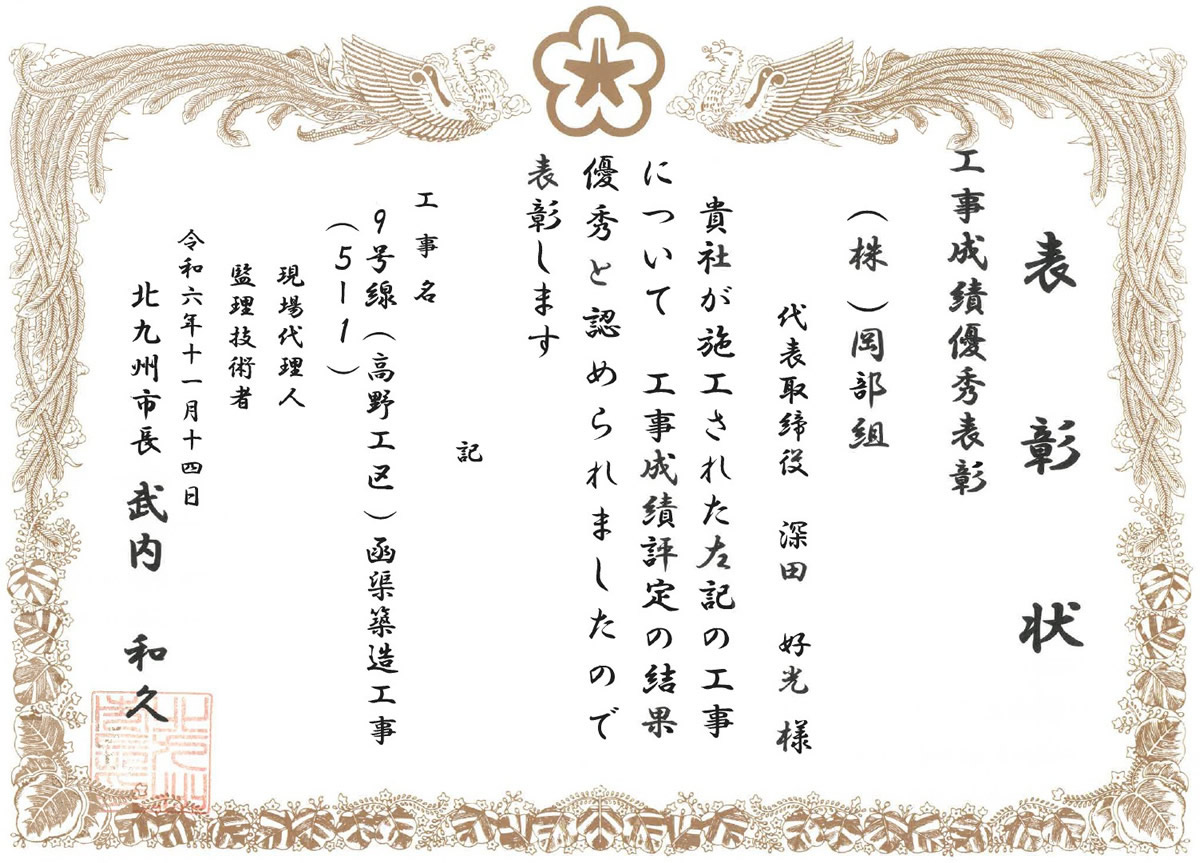 表彰状
工事成績優秀表彰
（株）岡部組
代表取締役 深田 好光 様
貴社が施工された左記の工事
について 工事成績評定の結果
優秀と認められましたので
表彰します
記
工事名
9号線（高野工区）函渠築造工事
（5-1）
現場代理人
監理技術者
令和六年十一月十四日
北九州市長 武内 和久